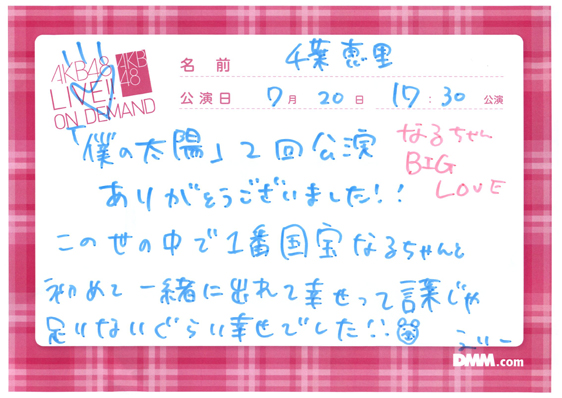 AKB48
LIVE!!
ON DEMAND
AKB
48
名前 千葉恵里
公演日 7月20日 17:30公演
「僕の太陽」2回公演
ありがとうございました!!
なるちゃん
BIG
LOVE
この世の中で1番国宝なるちゃんと
初めて一緒に出れて幸せって言葉じゃ
足りないぐらい幸せでした!!
えりー
DMM.com